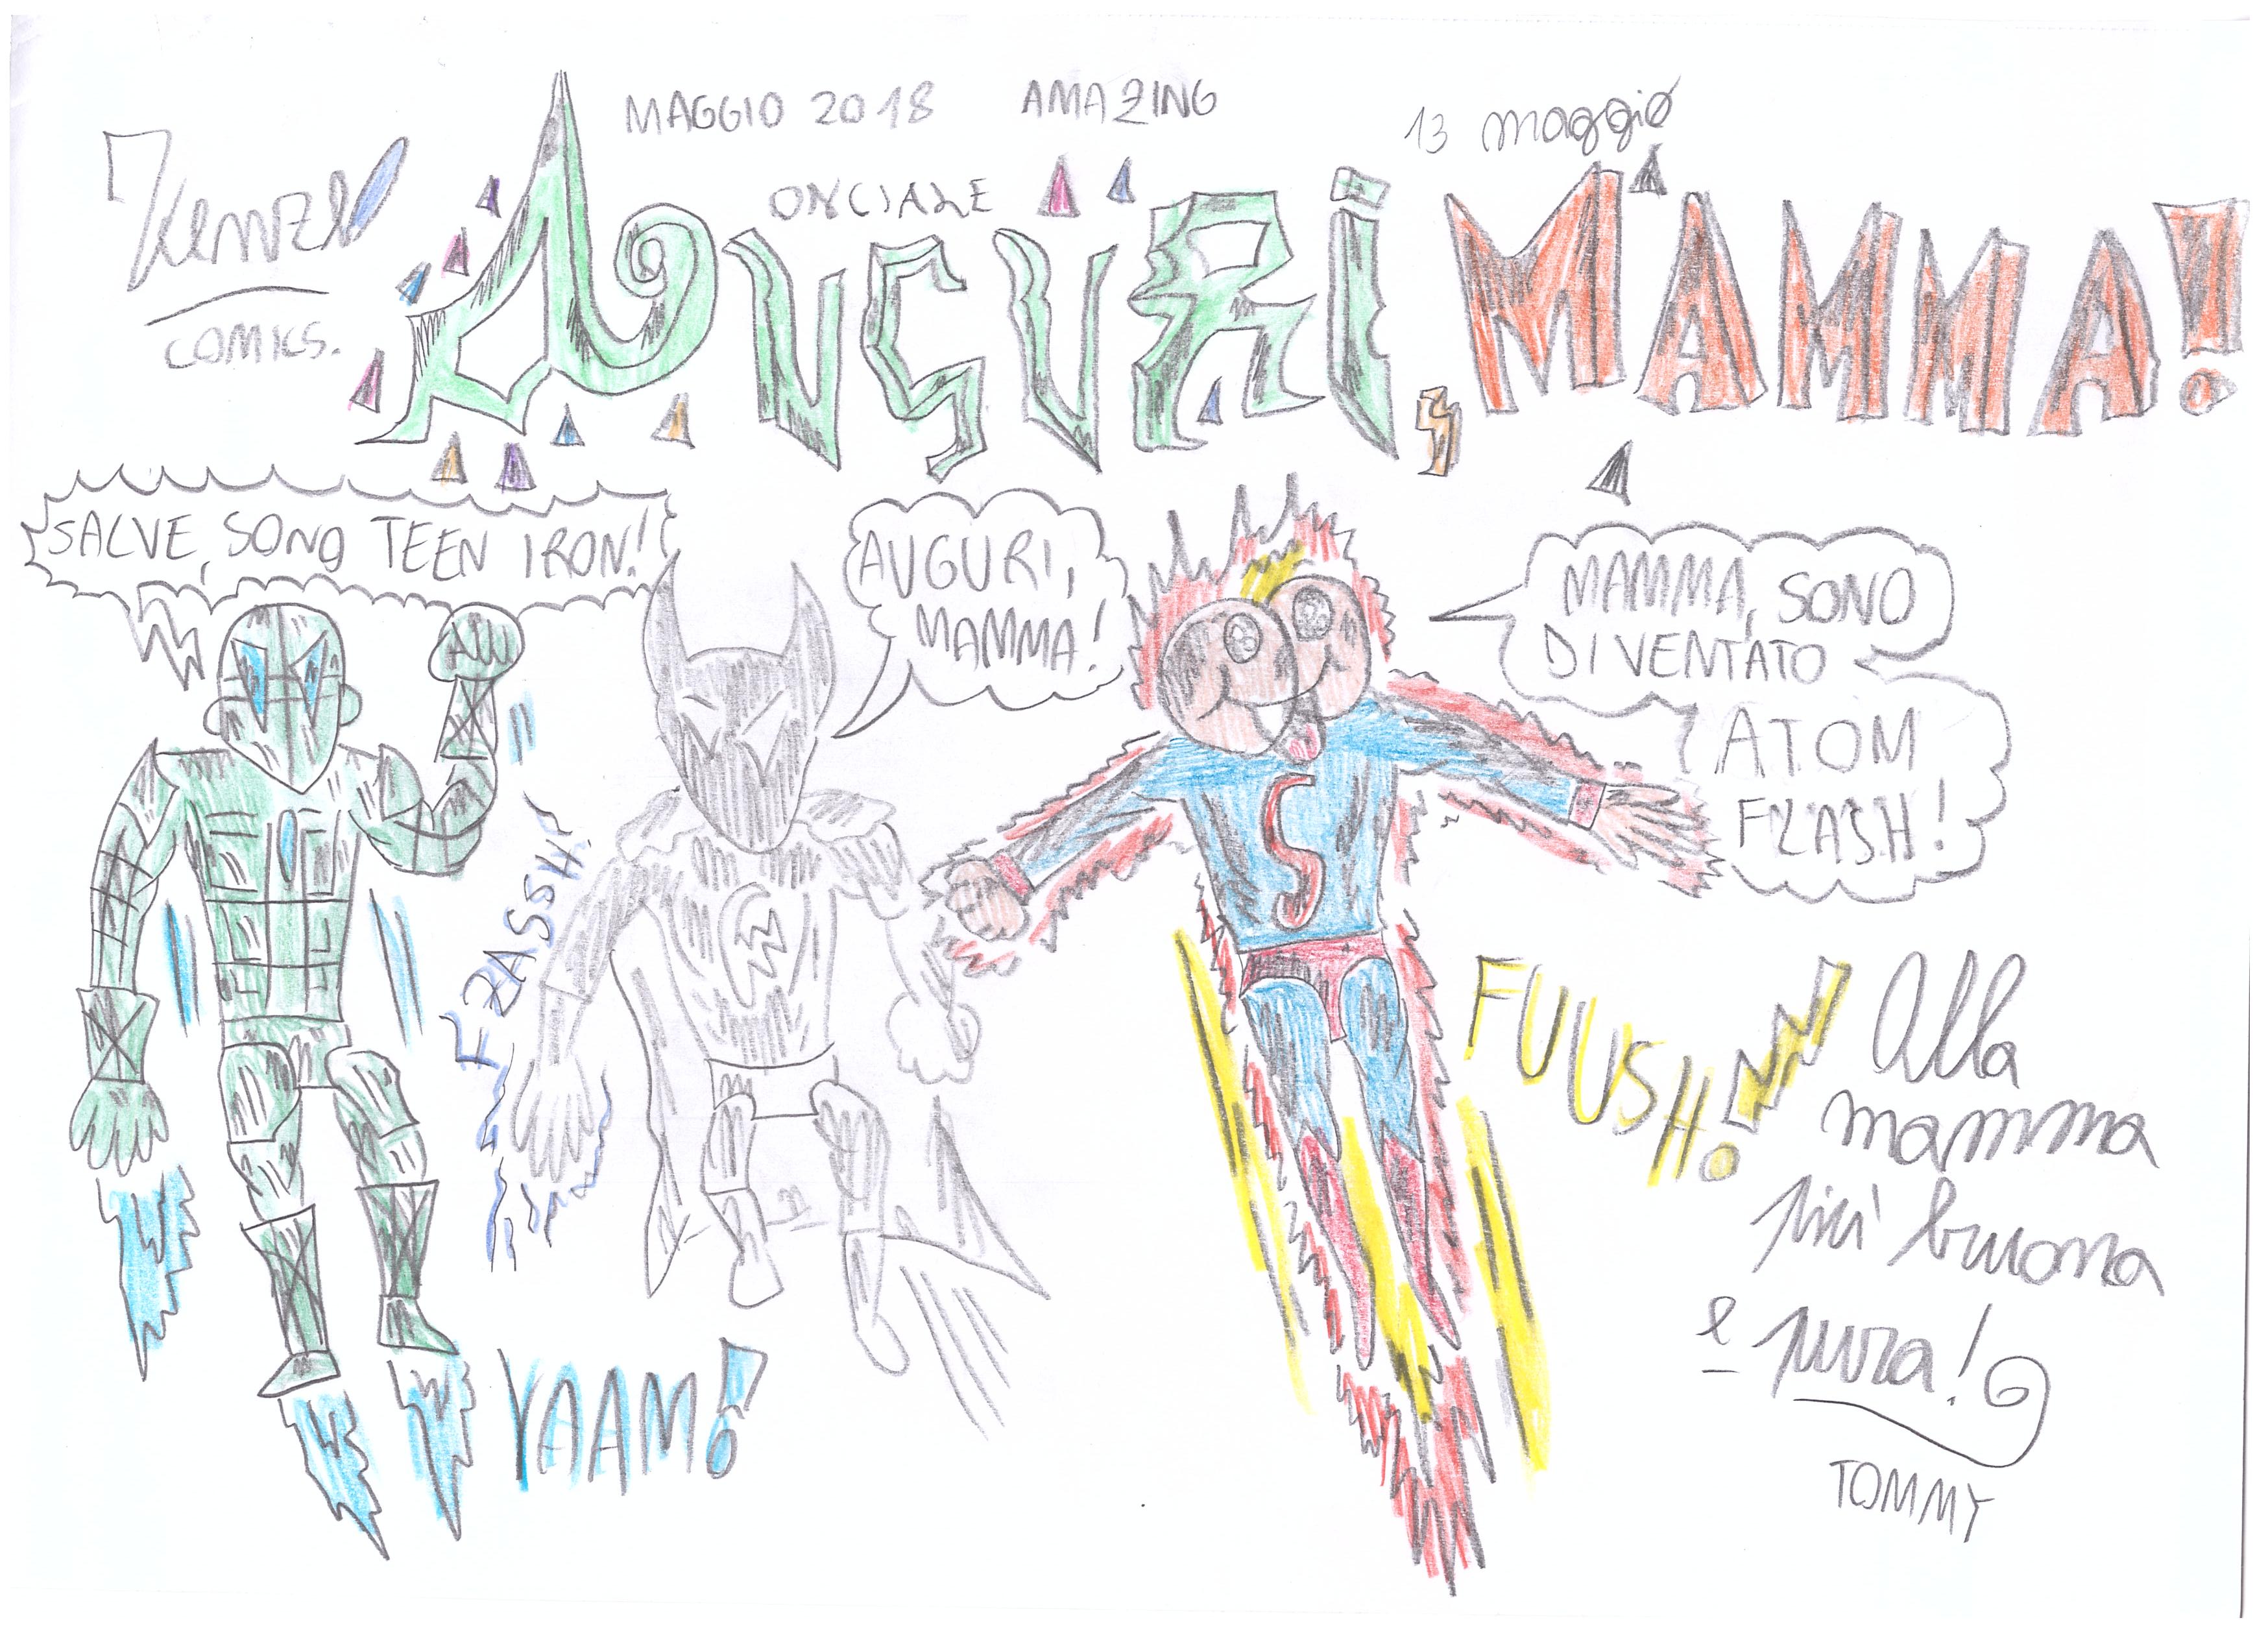 MAGGIO 2018 AMAZING
13 maggio
Kenzo
COMICS.
ONCIALE
AUGURI, MAMMA!
SALVE, SONO TEEN IRON!
AUGURI,
MAMMA!
MAMMA, SONO
DIVENTATO
ATOM
FLASH!
FZASSH!
FUUSH!
YAAM!
Alla
mamma
più buona
e pura!
TOMMY